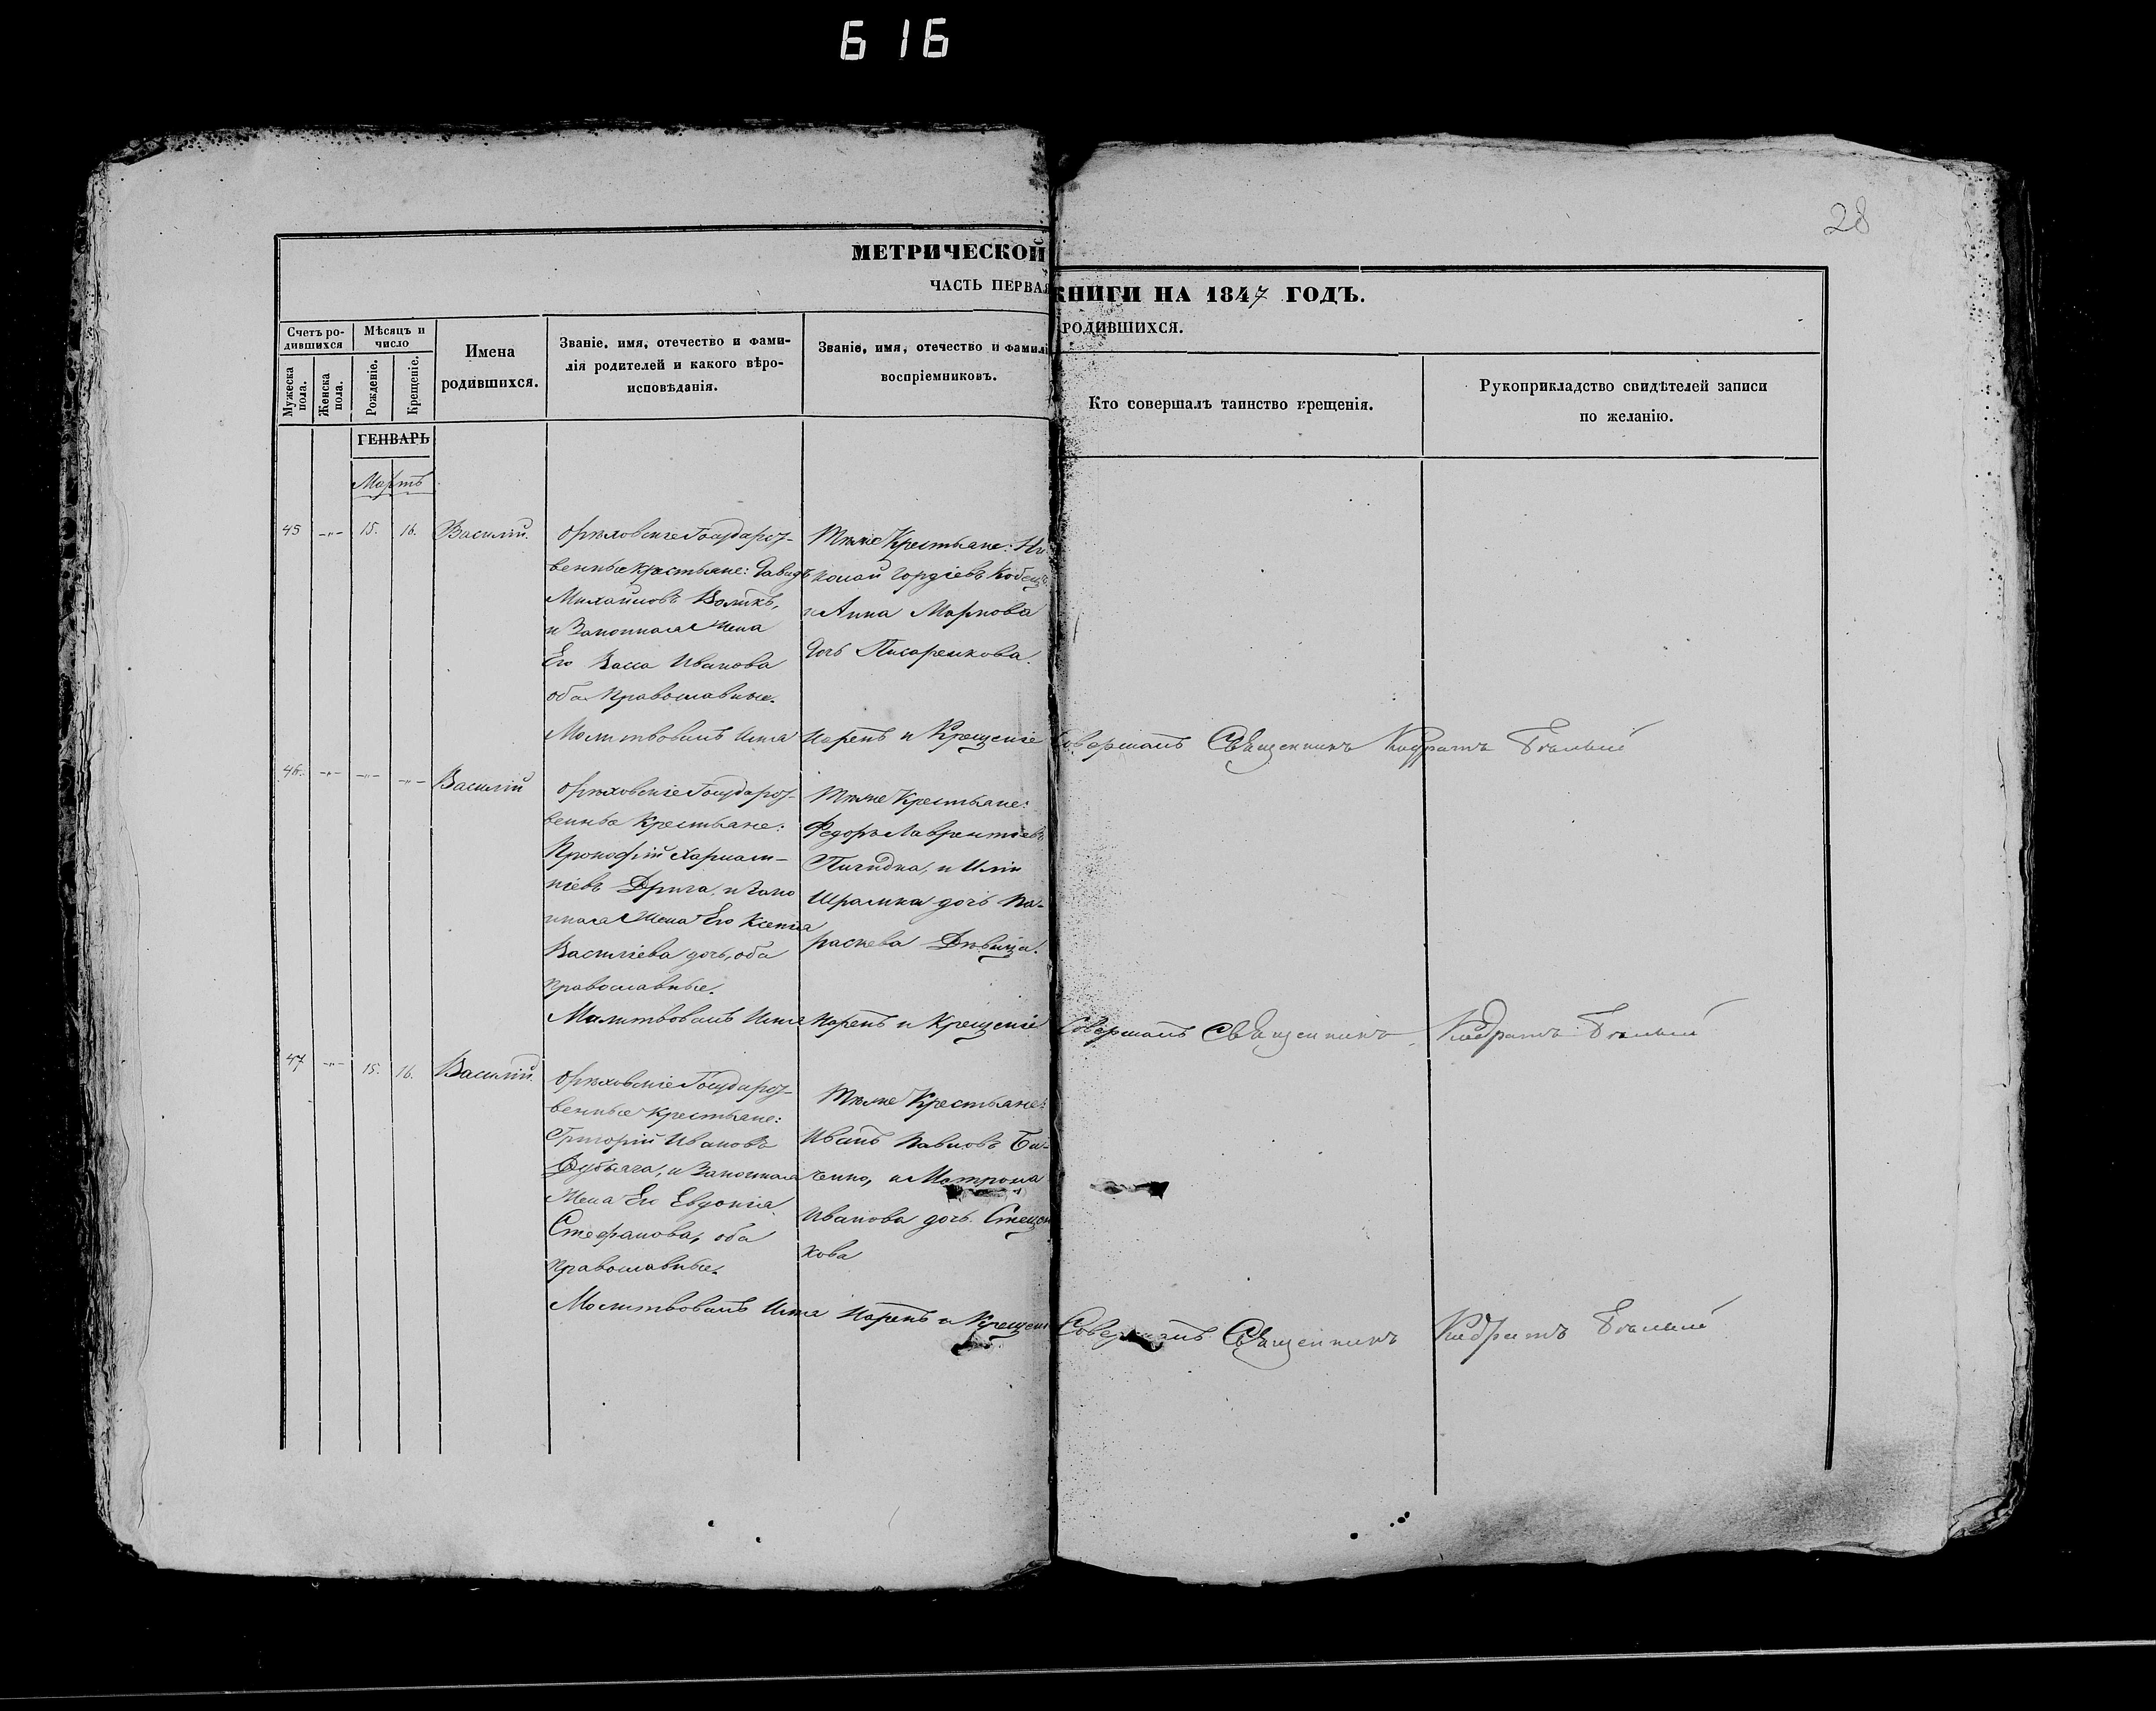 616
28
МЕТРИЧЕСКОЙ КНИГИ НА 1847 ГОДЪ.
ЧАСТЬ ПЕРВАЯ РОДИВШИХСЯ.
Счетъ ро-
дившихся
Мужеска пола.
Женска пола.
Мѣсяцъ и
число
Рожденіе.
Крещеніе.
Имена
родившихся.
Званіе, имя, отечество и фами-
лія родителей и какого вѣро-
исповѣданія.
Званіе, имя, отечество и фамилі
воспріемниковъ.
Кто совершалъ таинство крещенія.
Рукоприкладство свидѣтелей записи
по желанію.
ГЕНВАРЬ
Мартъ
45 -"- 15. 16. Василій.
Орѣховскіе Государст-
венные крестьяне: Давидъ
Михайловъ
и Законная Жена
Его Васса Иванова
оба Православные.
Тѣже Крестьяне: Ни
колай Гордіевъ Кобец
и Анна Маркова
дочь Писаренкова.
Молитвовалъ Имя Нарекъ и Крещеніе Совершалъ Священникъ Кодратъ Бѣлый
46. -"- -"- -"- Василій
Орѣховскіе Государст-
венные Крестьяне:
Прокофій Харлам-
піевъ Дрига, и Зако
нная Жена Его Ксенія
Василіева дочь, оба
православные.
Тѣже Крестьяне:
Федоръ Лаврентіевъ
и
дочь Па-
раскева Дѣвица.
Молитвовалъ Имя Нарекъ и Крещеніе Совершалъ Священникъ Кодратъ Бѣлый
47 -"- 15. 16. Василій.
Орѣховскіе Государст-
венные крестьяне:
Григорій Ивановъ
и Законная
Жена Его Евдокія
Стефанова, оба
православные.
Тѣже Крестьяне:
Иванъ Павловъ Би-
ченко, и Матрона
Иванова дочь
кова
Молитвовалъ Имя Нарекъ и Крещені Совершалъ Священникъ Кодратъ Бѣлый